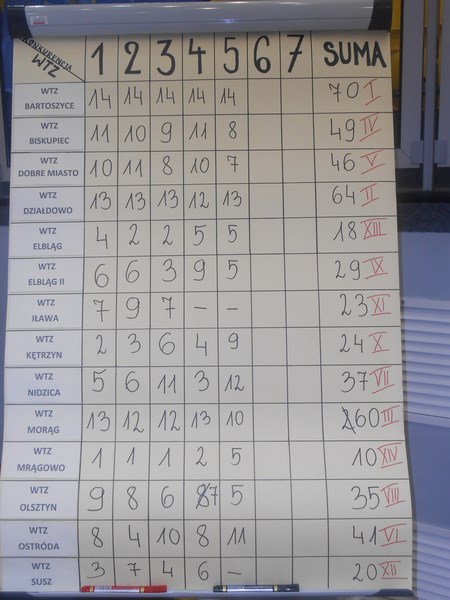 KONKURENCJA
WTZ 1 2 3 4 5 6 7 SUMA
WTZ BARTOSZYCE 14 14 14 14 14 70 I
WTZ BISKUPIEC 11 10 9 11 8 49 IV
WTZ DOBRE MIASTO 10 11 8 10 7 46 V
WTZ DZIAŁDOWO 13 13 13 12 13 64 II
WTZ ELBLĄG 4 2 2 5 5 18 XIII
WTZ ELBLĄG II 6 6 3 9 5 29 IX
WTZ IŁAWA 7 9 7 – – 23 XI
WTZ KĘTRZYN 2 3 6 4 9 24 X
WTZ NIDZICA 5 6 11 3 12 37 VII
WTZ MORĄG 13 12 12 13 10 60 III
WTZ MRĄGOWO 1 1 1 2 5 10 XIV
WTZ OLSZTYN 9 8 6 7 5 35 VIII
WTZ OSTRÓDA 8 4 10 8 11 41 VI
WTZ SUSZ 3 7 4 6 – 20 XII